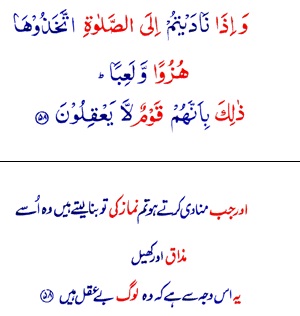 وَ اِذَا نَادَيْتُمْ اِلَى الصَّلٰوةِ اتَّخَذُوْهَا
هُزُوًا وَّ لَعِبًا ؕ
ذٰلِكَ بِاَنَّهُمْ قَوْمٌ لَّا يَعْقِلُوْنَ ﴿۵۸﴾
اور جب منادی کرتے ہو تم نماز کی تو بنا لیتے ہیں وہ اُسے
مذاق اور کھیل
یہ اس وجہ سے ہے کہ وہ لوگ بے عقل ہیں ﴿۵۸﴾